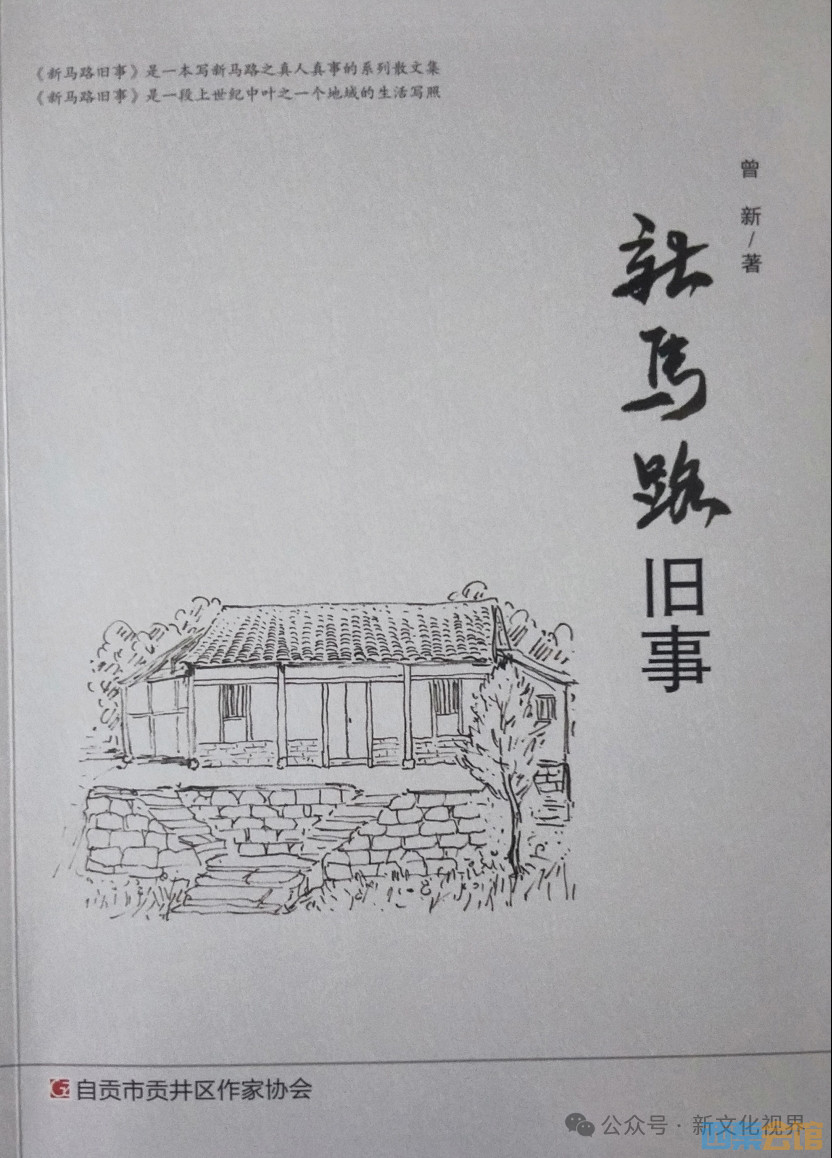 《新马路旧事》是一本写新马路之真人真事的系列散文集
《新马路旧事》是一段上世纪中叶之一个地域的生活写照
曾 新/著
新马路
旧事
自贡市贡井区作家协会
公众号·新文化视界
西秦会馆